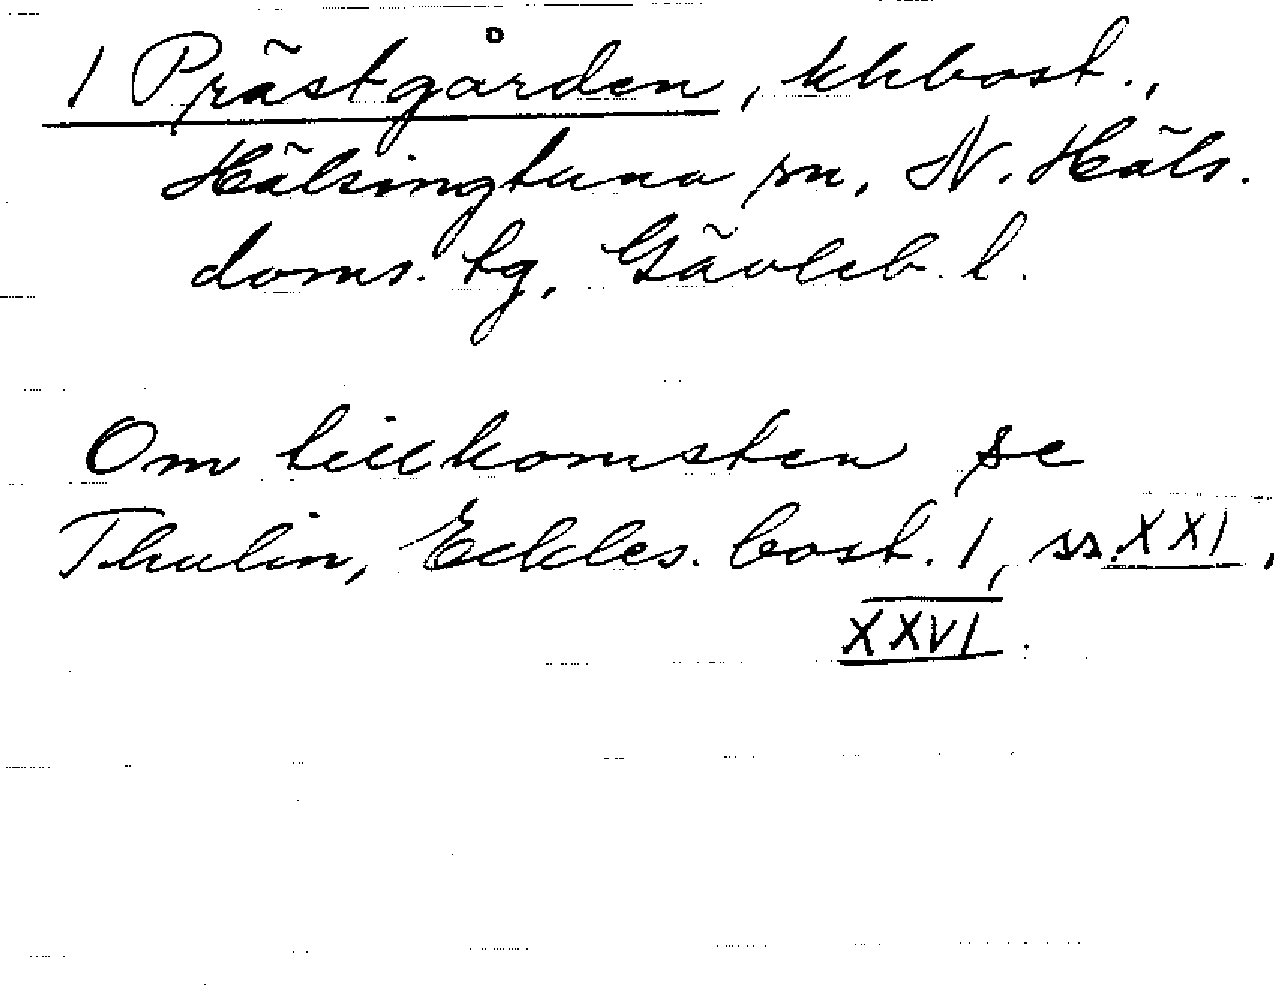 1 Prästgården, khbost.,
Hälsingtuna sn, N. Häls.
doms. tg, Gävleb. l.
Om tillkomsten se
Thulin, Eckles. bost. 1, ss. XXI,
XXVI.